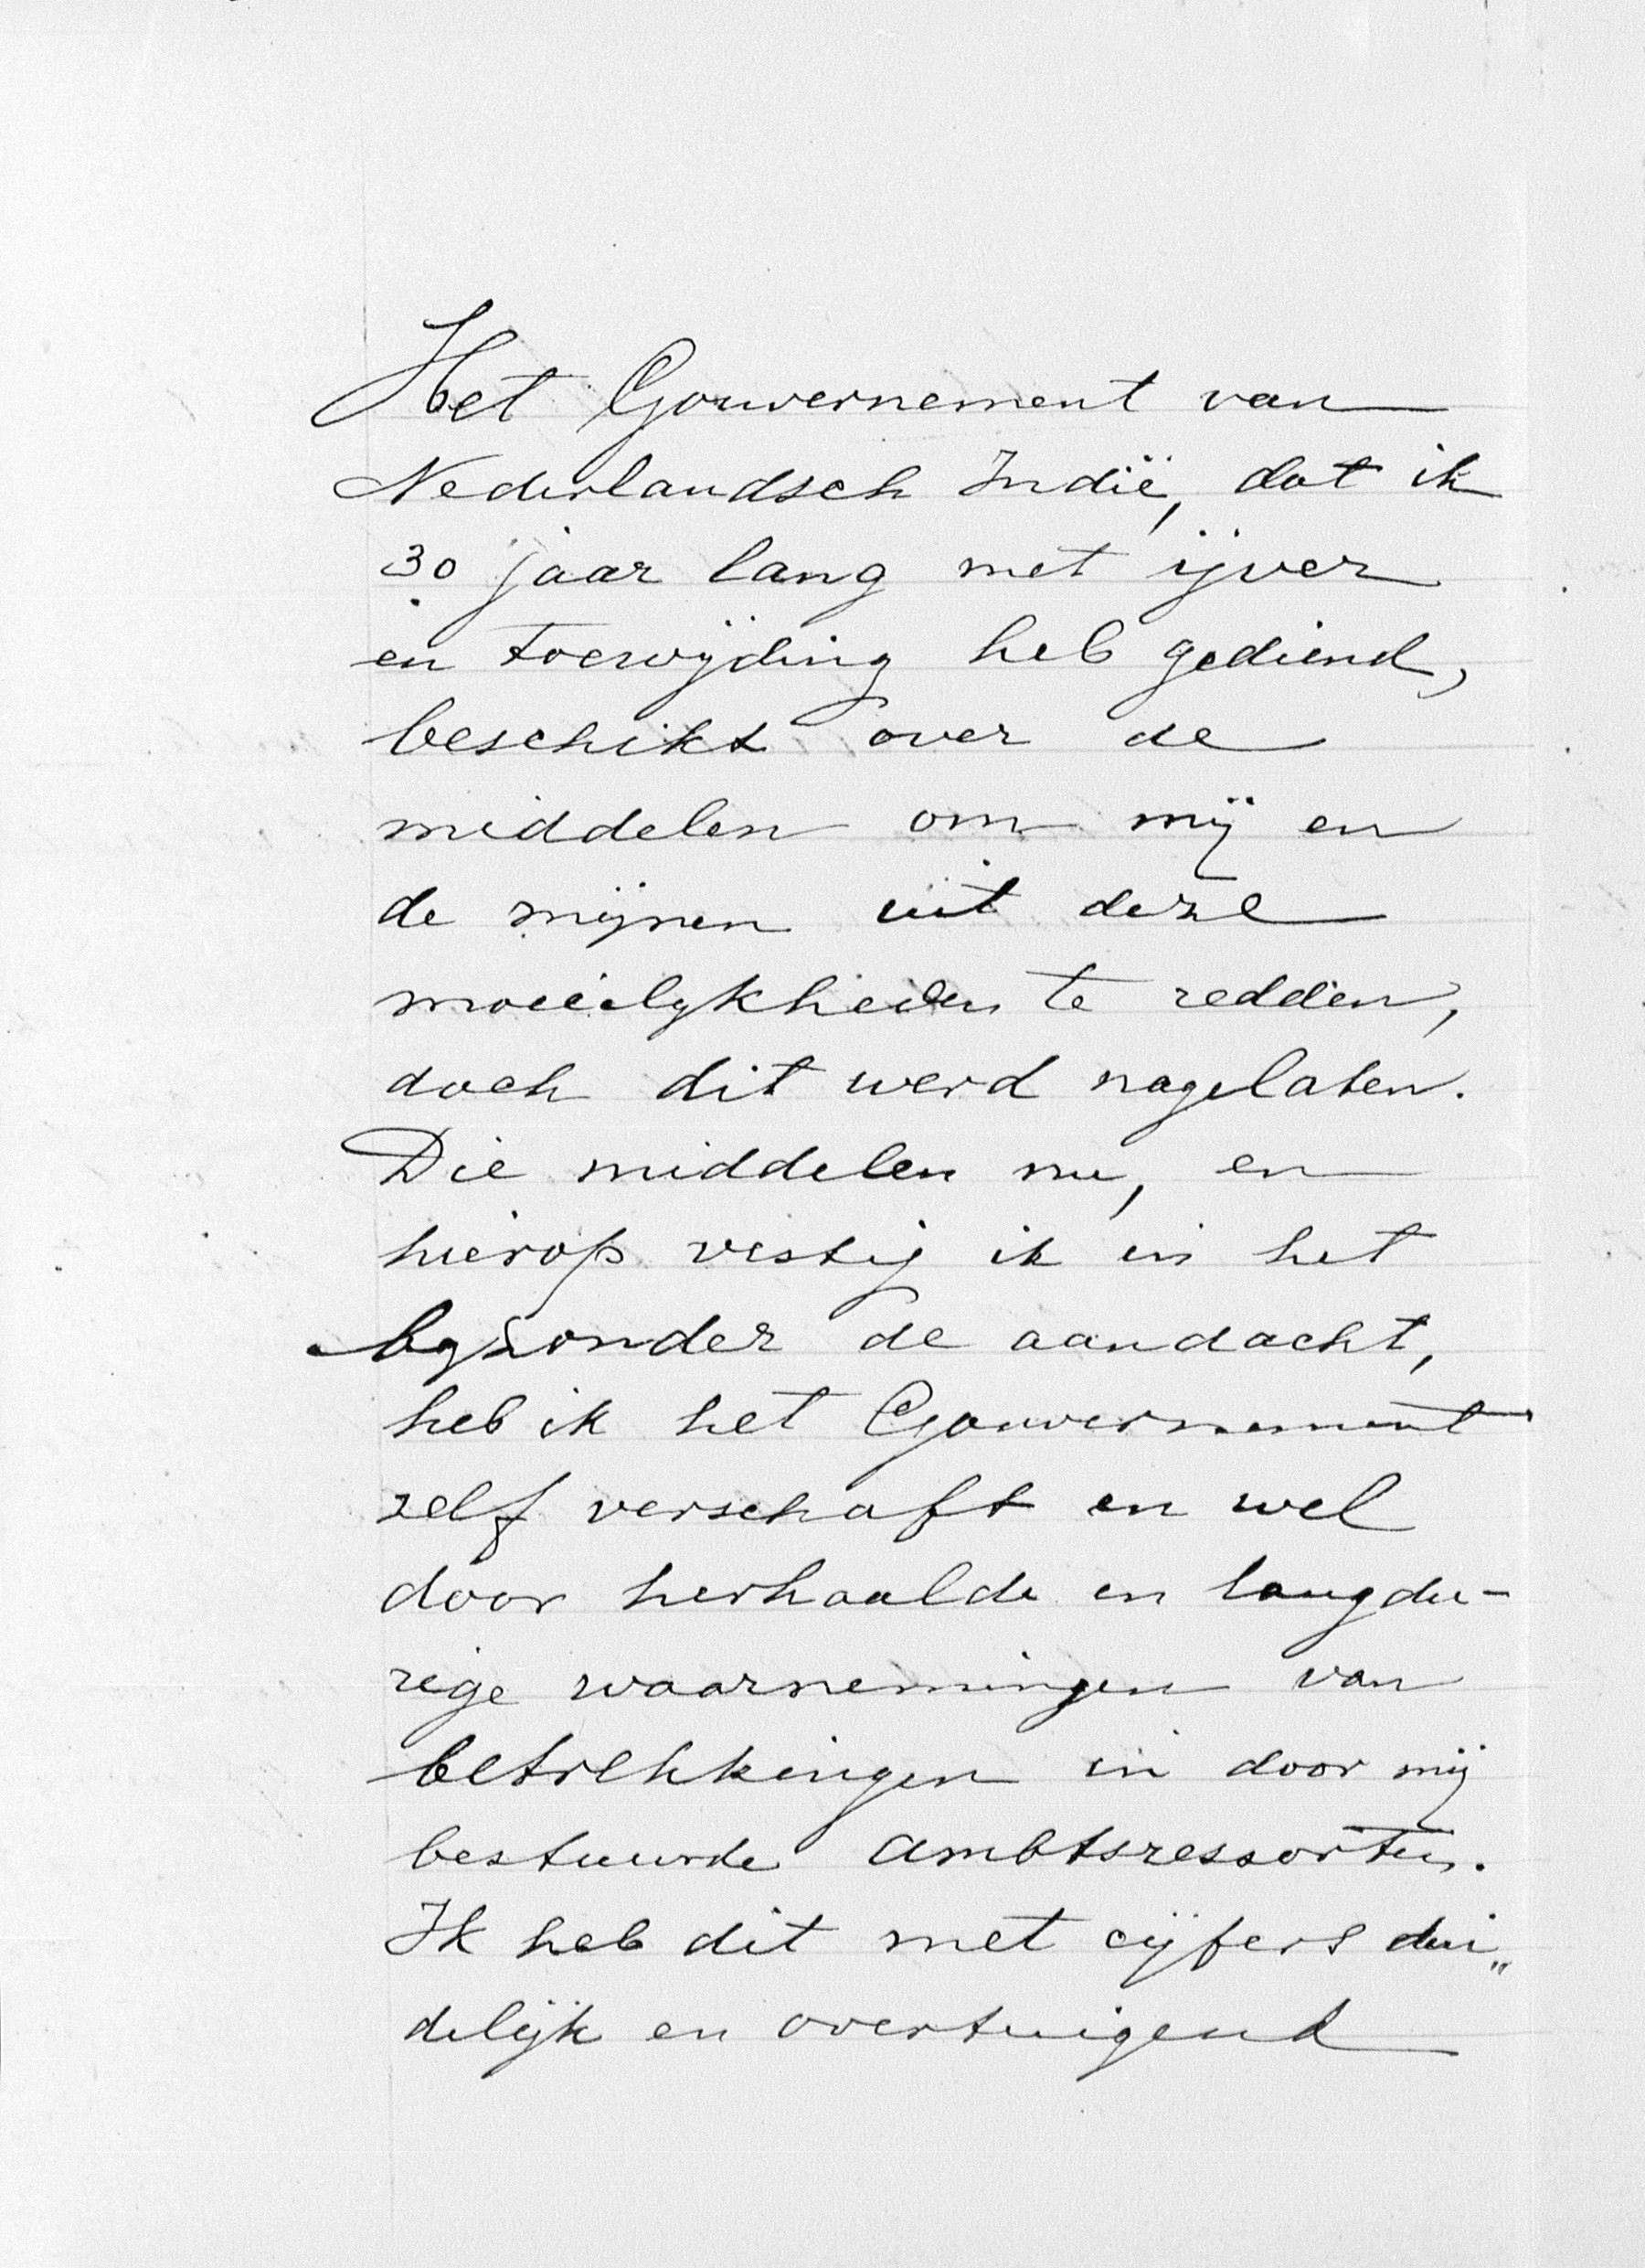 Het Gouvernement van
Nederlandsch Indië, dat ik
30 jaar lang met ijver
en toewijding heb gediend,
beschikt over de
middelen om mij en
de mijnen uit deze
moeielykheden te redden,
doch dit werd nagelaten.
Die middelen nu, en
hierop vestig ik in het
byzonder de aandacht,
heb ik het Gouvernement
zelf verschaft en wel
door herhaalde en langdu-
rige waarnemingen van
betrekkingen in door mij
bestuurde ambtsressorten.
Ik heb dit met cijfers dui„
delijk en overtuigend